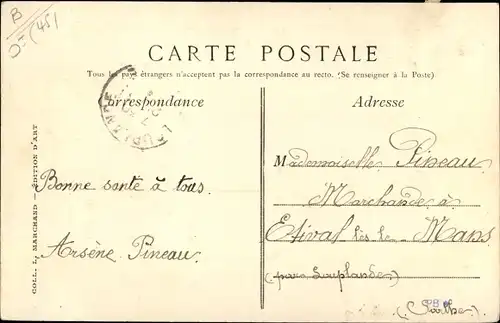 B
(45)
CARTE POSTALE
Tous les pays étrangers n'acceptent pas la correspondance au recto. (Se renseigner à la Poste)
Correspondance
Adresse
COLL. L. MARCHAND — ÉDITION D'ART
Bonne santé à tous.
Arsène Pineau.
Mademoiselle Pineau
Marchande à
Etival lès le Mans
(par Souplande)
(Sarthe)
PB